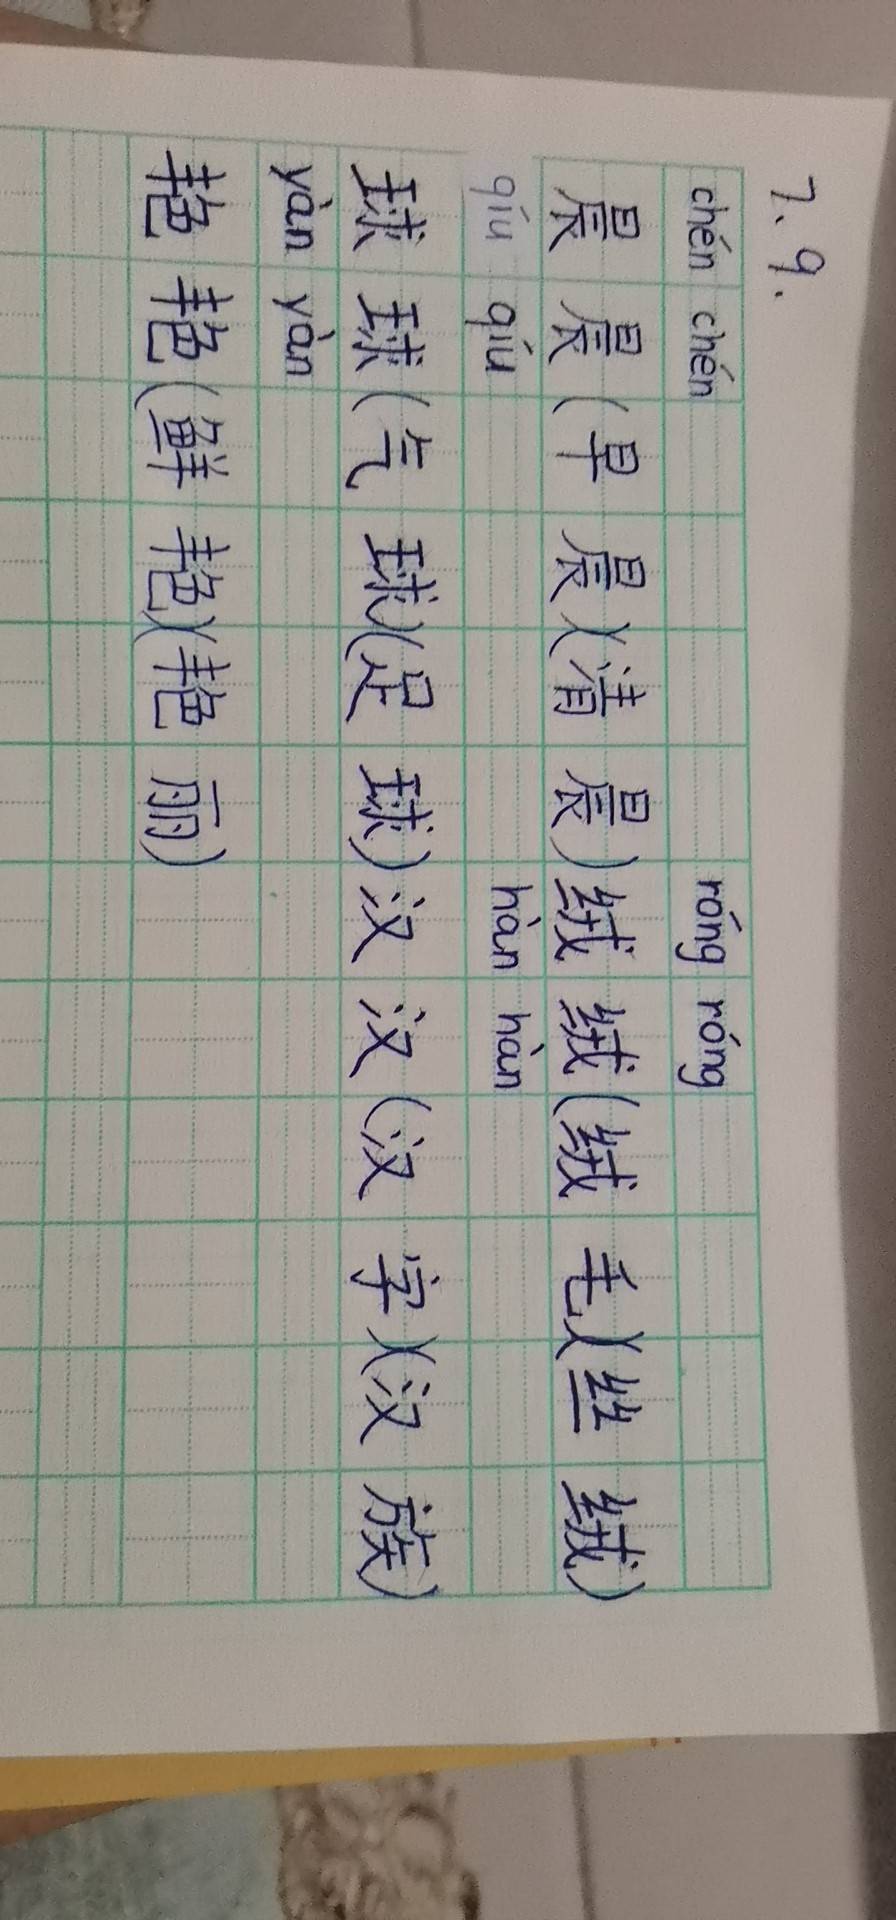 7.9.
chén chén róng róng
晨晨(早晨)(清晨)绒绒(绒毛)(丝绒)
qíu qíu hàn hàn
球球(气球)(足球)汉汉(汉字)(汉族)
yàn yàn
艳艳(鲜艳)(艳丽)